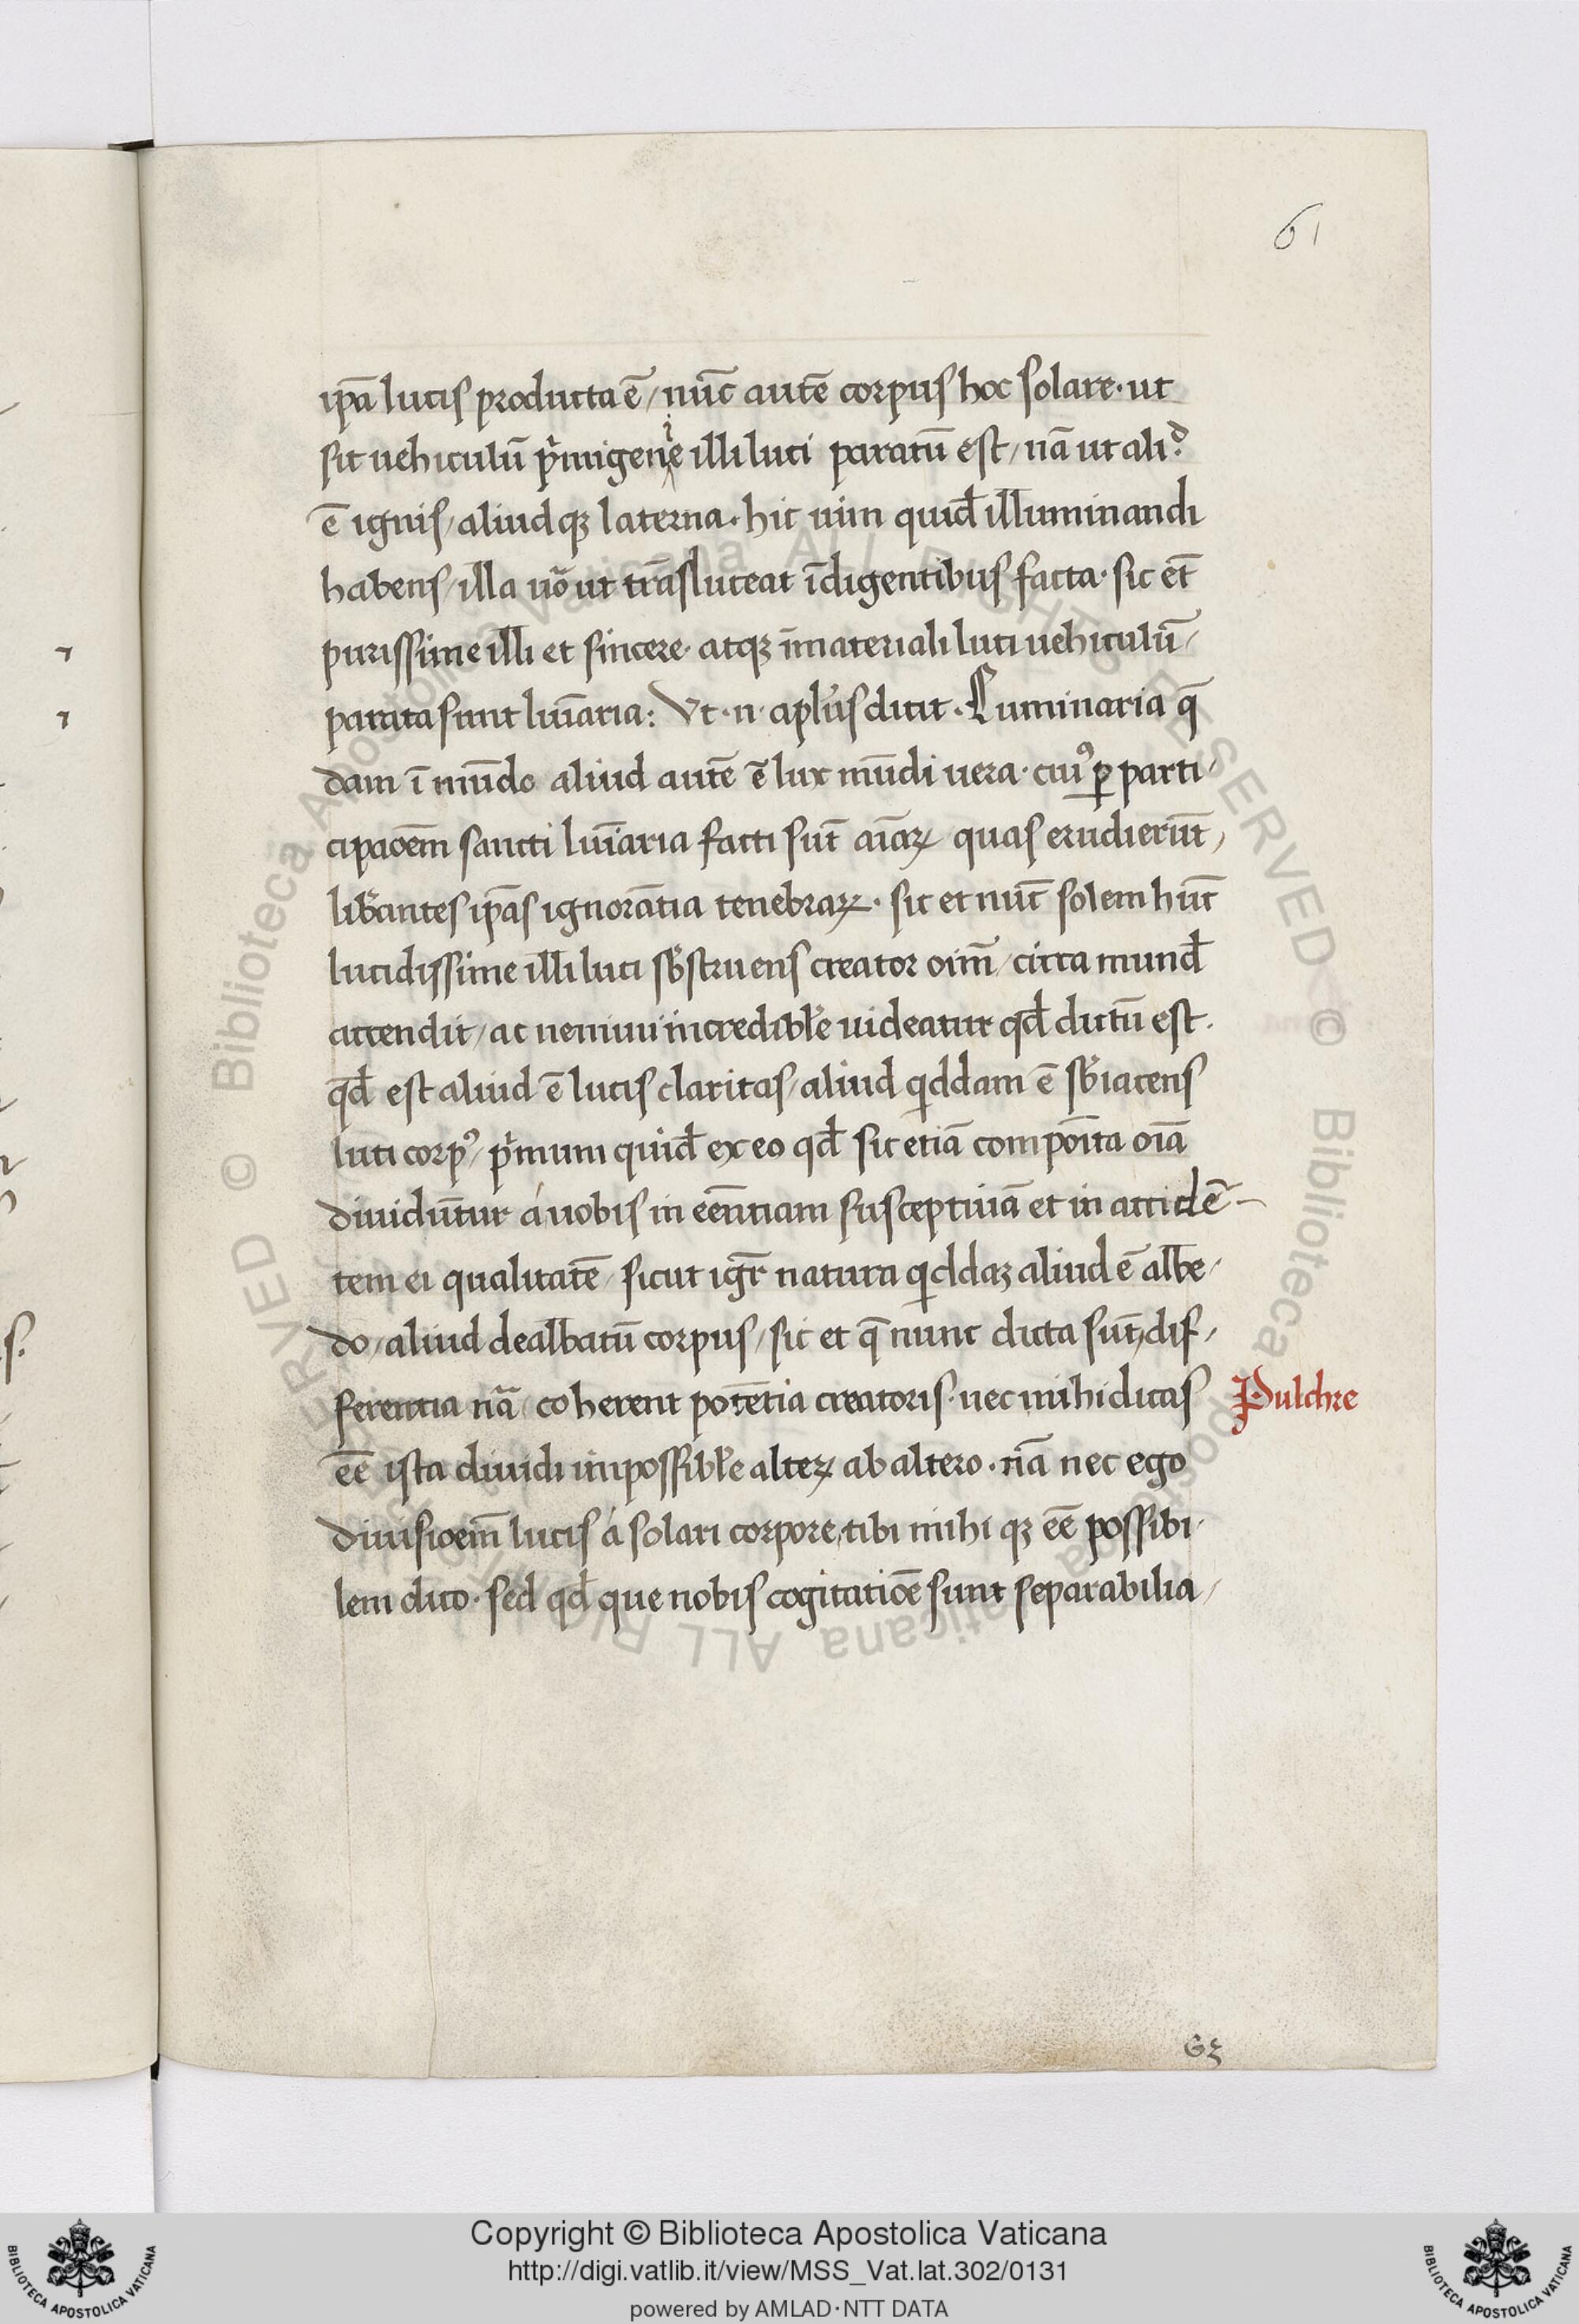 61
ip̄a lucis producta ē / nūc autē corpus hoc solare · ut
sit uehiculū pͥmigenie illi luci paratū est / nā ut aliᵈ
ē ignis / aliudqꝫ laterna · hic uim quid̄ illuminandi
habens / illa uͦo ut trāsluceat īdigentibus facta · sic et̄
purissime illi et sincere · atqꝫ īmateriali luci uehiculū /
parata sunt luīaria : Vt · n · apl̄us dicit · Luminaria q̄
dam ī mūdo aliud autē ē lux mūdi uera · cuiꝰ ꝑ parti
cipaoēm sancti luīaria facti sūt aīaꝝ quas erudierūt /
lib̄antes ip̄as ignorātia tenebraꝝ · sic et nūc solem hūc
lucidissime illi luci sb̄struens creator oīm / circa mund̄
accendit / ac nemini incredibl̄e uideatur qd̄ dictū est ·
qd̄ est aliud ē lucis claritas / aliud qͥddam ē sb̄iacens
luci corpꝰ / pͥmum quid̄ ex eo qd̄ sic etiā compoīta oīa
diuidūtur á uobis in eēntiam susceptiuā et in accidē
tem ei qualitatē / sicut igr̄ natura qͥddaꝫ aliud ē albe
do / aliud dealbatū corpus / sic et q̄ nunc dicta sūt / dif /
ferentia nā / coherent potētia creatoris · nec mihi dicas
Pulchre
eē ista diuidi impossibl̄e alteꝝ ab altero · nā nec ego
diuisioēm lucis á solari corpore / tibi mihi qꝫ eē possibi
lem dico · sed qd̄ que nobis cogitatiōe sunt separabilia /
G3
Copyright © Biblioteca Apostolica Vaticana
http://digi.vatlib.it/view/MSS_Vat.lat.302/0131
powered by AMLAD·NTT DATA